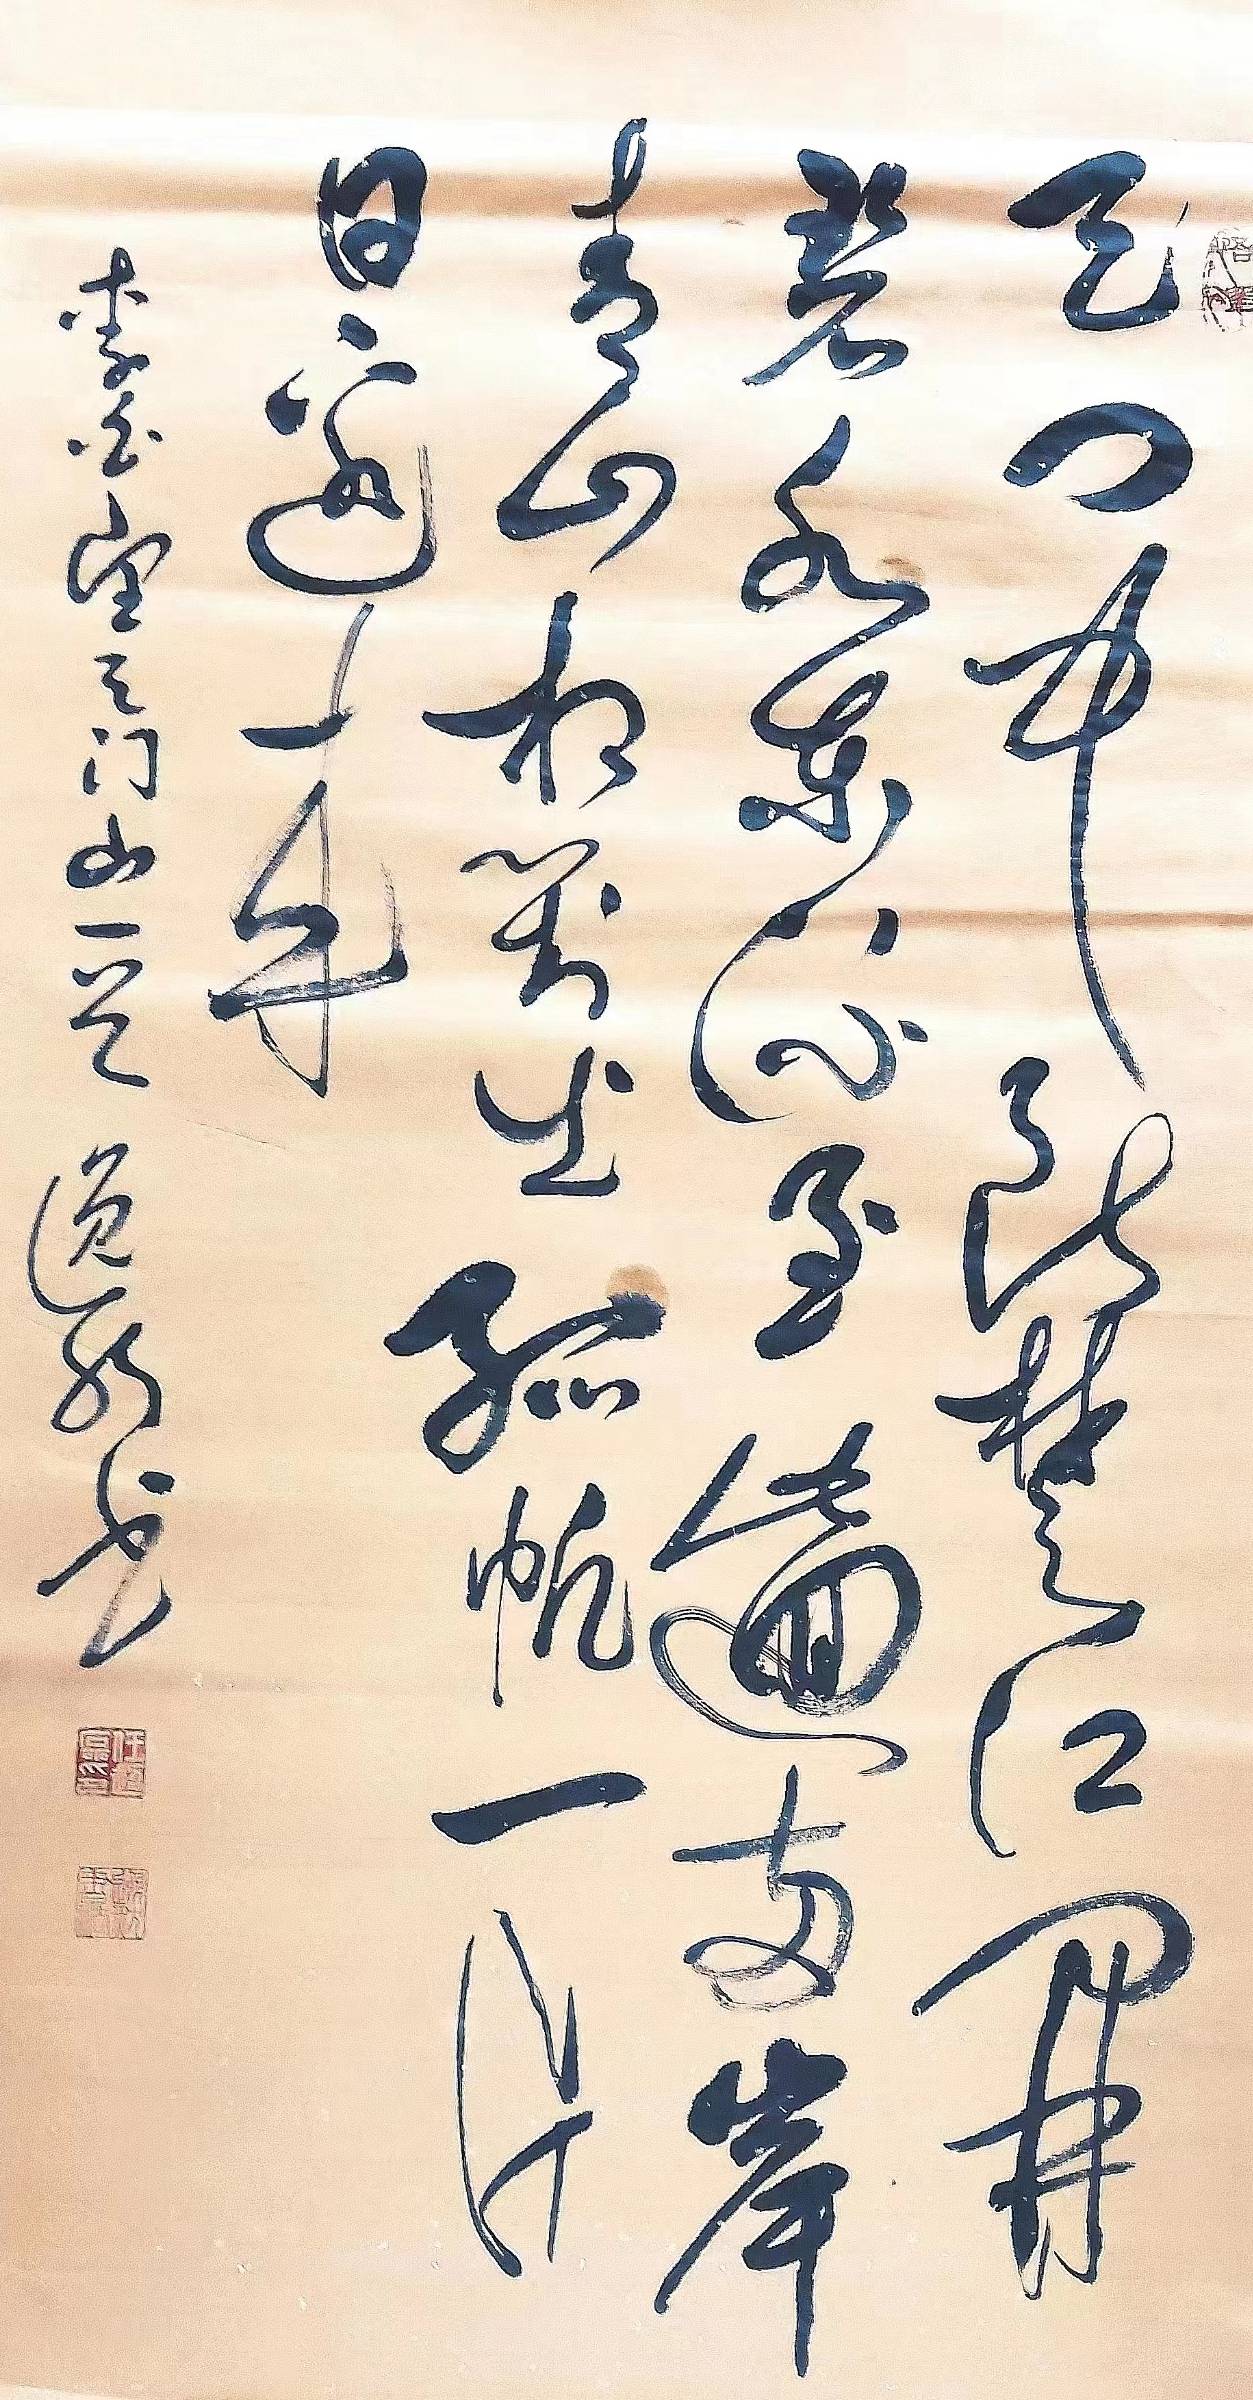 天门中断楚江開
碧水東流至此迴两岸
青山相對出孤帆一片
日邊来
李白望天门山一首 书